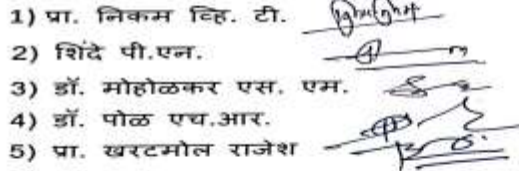 1) प्रा. निकम व्हि. टी.
2) शिंदे पी.एन.
3) डॉ. मोहोळकर एस. एम.
4) डॉ. पोळ एच.आर.
5) प्रा. खरटमोल राजेश